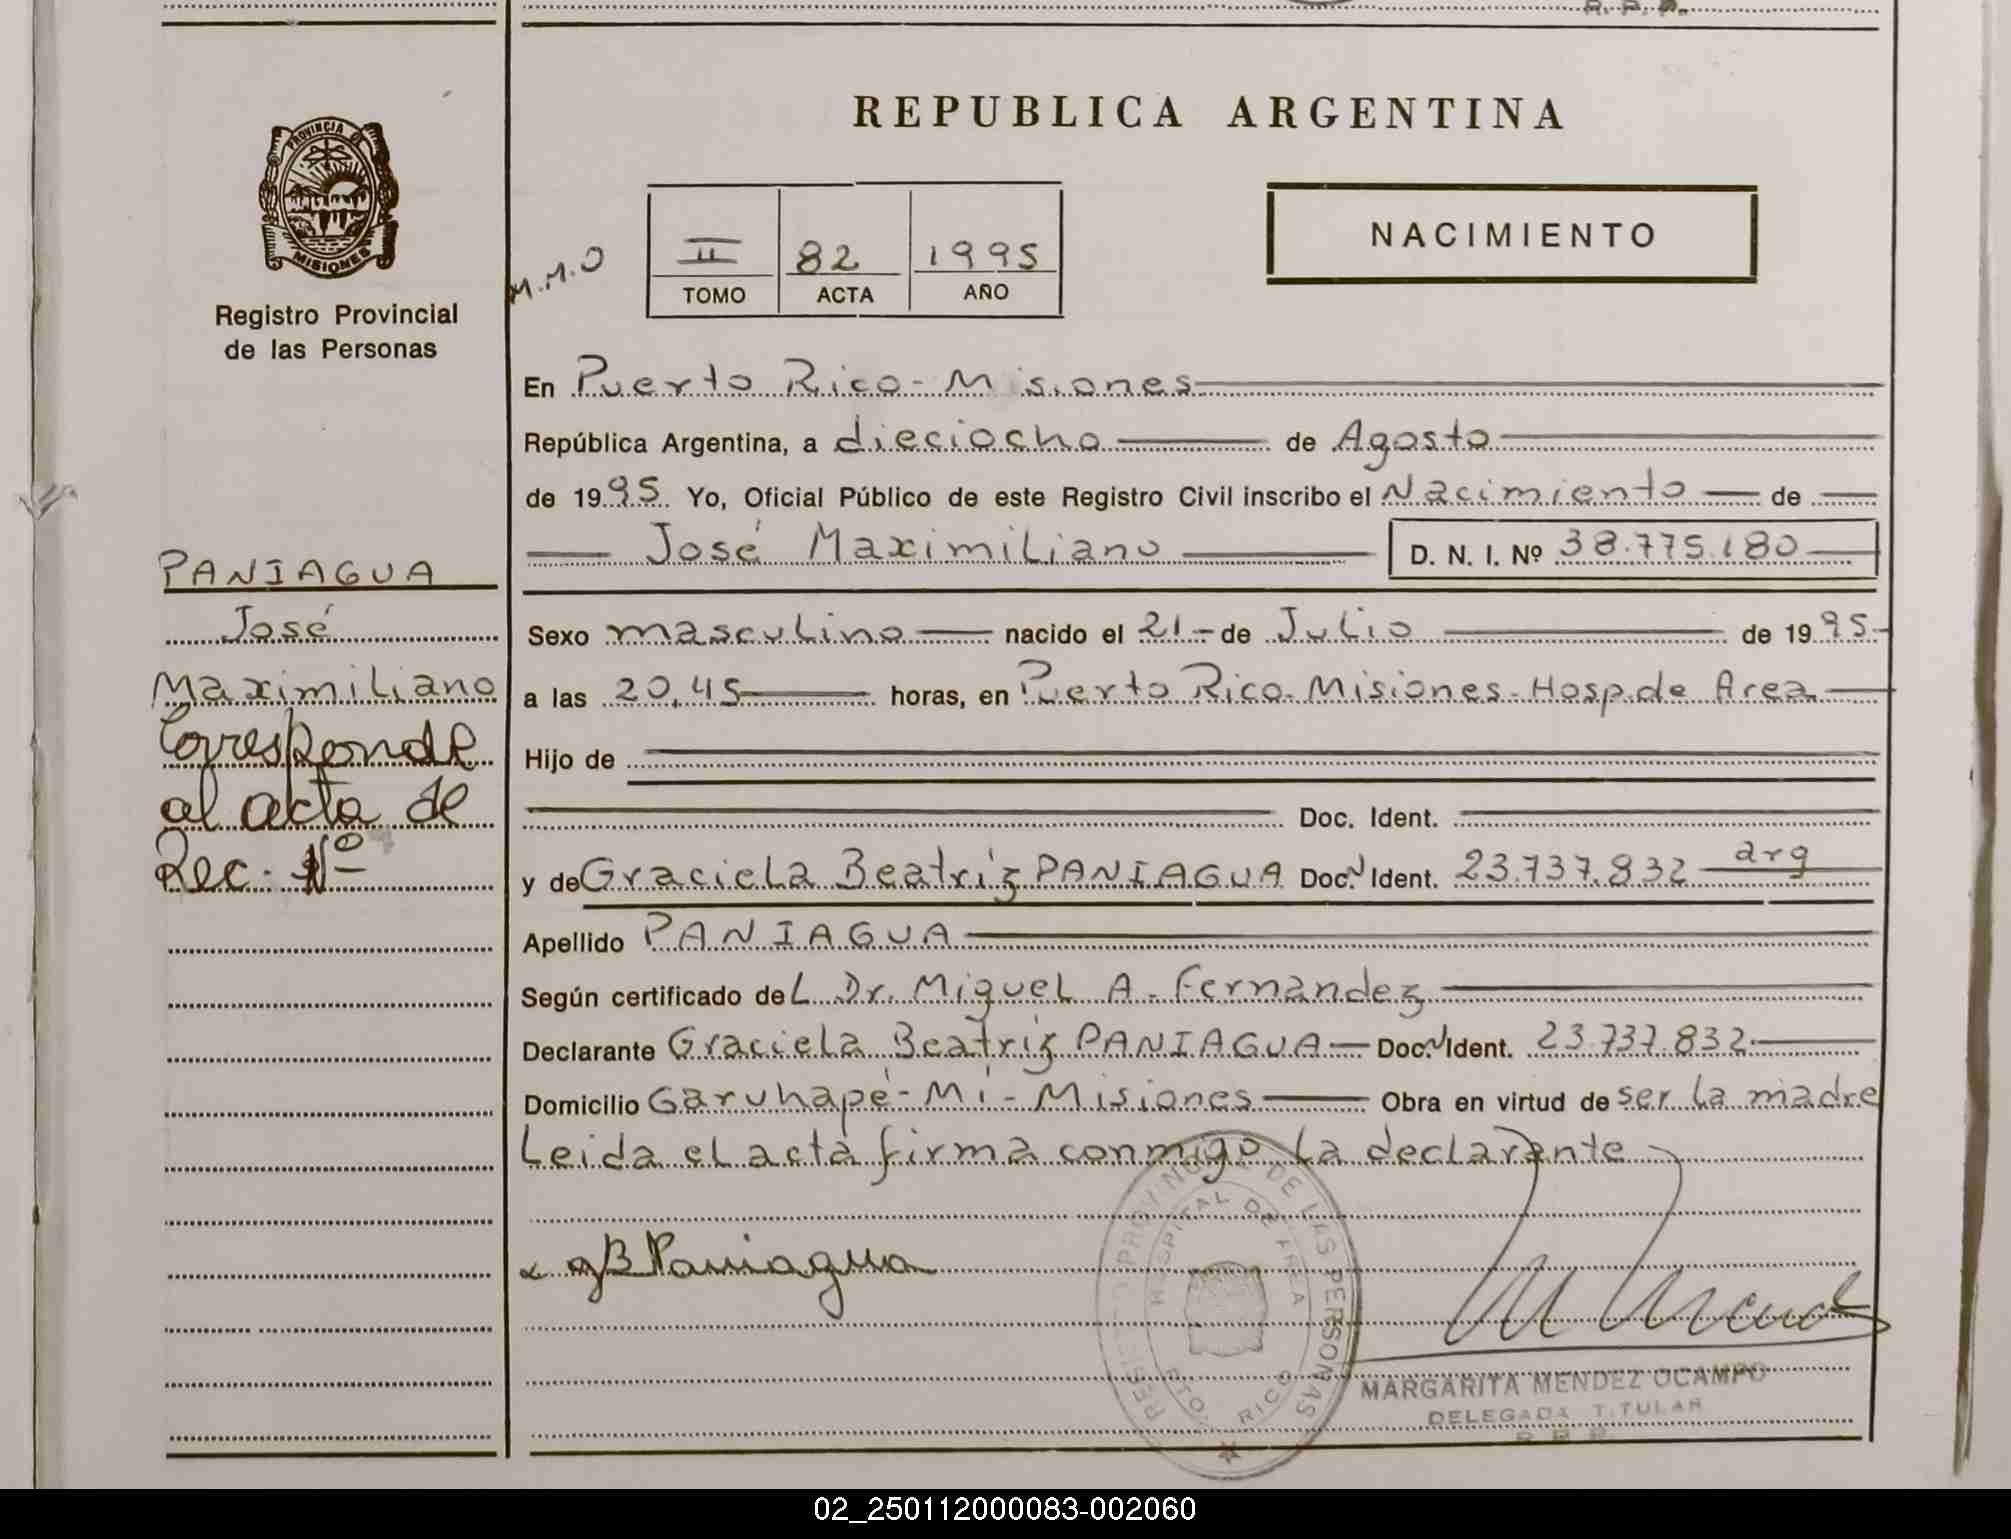 R. P. P.
REPUBLICA ARGENTINA
PROVINCIA DE
MISIONES
Registro Provincial
de las Personas
M.M.O
II 82 1995
TOMO ACTA AÑO
NACIMIENTO
En Puerto Rico - Misiones
República Argentina, a dieciocho de Agosto
de 1995. Yo, Oficial Público de este Registro Civil inscribo el Nacimiento de
José Maximiliano D. N. I. Nº 38.775.180
PANIAGUA
José
Maximiliano
Corresponde
al acta de
Rec. Nº
Sexo masculino nacido el 21 - de Julio de 1995
a las 20,45 horas, en Puerto Rico - Misiones - Hosp. de Area
Hijo de
Doc. Ident.
y de Graciela Beatriz PANIAGUA Doc. Ident. 23.737.832 arg
Apellido PANIAGUA
Según certificado del Dr. Miguel A. Fernandez
Declarante Graciela Beatriz PANIAGUA Doc. Ident. 23.737.832
Domicilio Garuhapé - Mí - Misiones Obra en virtud de ser la madre
Leida el acta firma conmigo la declarante
GB Paniagua
REGISTRO PROVINCIAL DE LAS PERSONAS
HOSPITAL DE AREA
PTO. RICO
MARGARITA MENDEZ OCAMPO
DELEGADA TITULAR
02_250112000083-002060